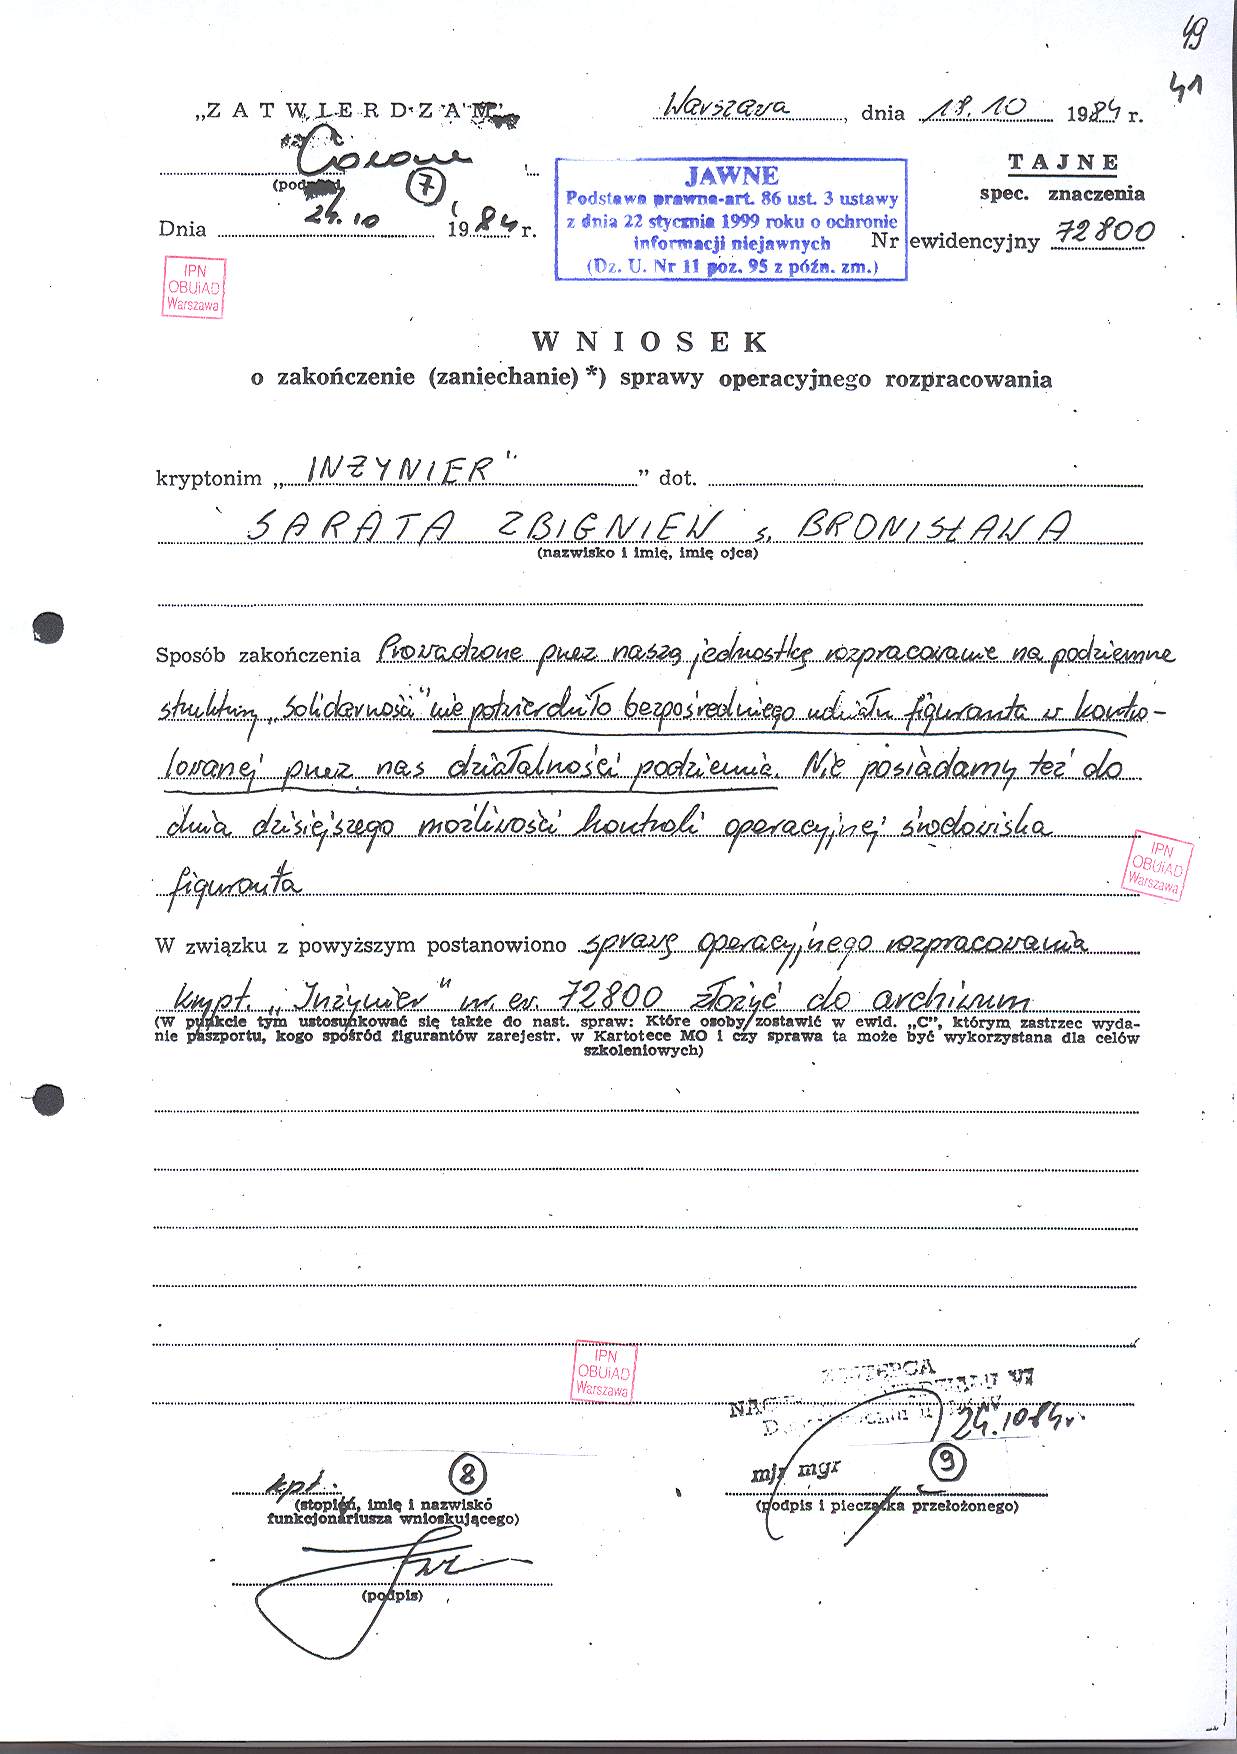 49
41
„ZATWIERDZAM"
Warszawa, dnia 18.10 1984 r.
TAJNE
spec. znaczenia
Nr ewidencyjny 72800
7
24.10
Dnia 1984 r.
JAWNE
Podstawa prawna-art. 86 ust. 3 ustawy
z dnia 22 stycznia 1999 roku o ochronie
informacji niejawnych
(Dz. U. Nr 11 poz. 95 z późn. zm.)
IPN
OBUiAD
Warszawa
WNIOSEK
o zakończenie (zaniechanie) *) sprawy operacyjnego rozpracowania
kryptonim „INŻYNIER" ” dot.
SARATA ZBIGNIEW s. BRONISŁAWA
(nazwisko i imię, imię ojca)
Sposób zakończenia Prowadzone przez naszą jednostkę rozpracowanie na podziemne
struktury „Solidarności" nie potwierdziło bezpośredniego udziału figuranta w kontro-
lowanej przez nas działalności podziemia. Nie posiadamy też do
dnia dzisiejszego możliwości kontroli operacyjnej środowiska
figuranta
IPN
OBUiAD
Warszawa
W związku z powyższym postanowiono sprawę operacyjnego rozpracowania
krypt. „Inżynier" nr. ew. 72800 złożyć do archiwum
(W punkcie tym ustosunkować się także do nast. spraw: Które osoby zostawić w ewid. „C”, którym zastrzec wyda-
nie paszportu, kogo spośród figurantów zarejestr. w Kartotece MO i czy sprawa ta może być wykorzystana dla celów
szkoleniowych)
IPN
OBUiAD
Warszawa
ZASTĘPCA
24.10.84r.
kpt. 8
mjr mgr 9
(stopień, imię i nazwisko
funkcjonariusza wnioskującego)
(podpis i pieczątka przełożonego)
(podpis)